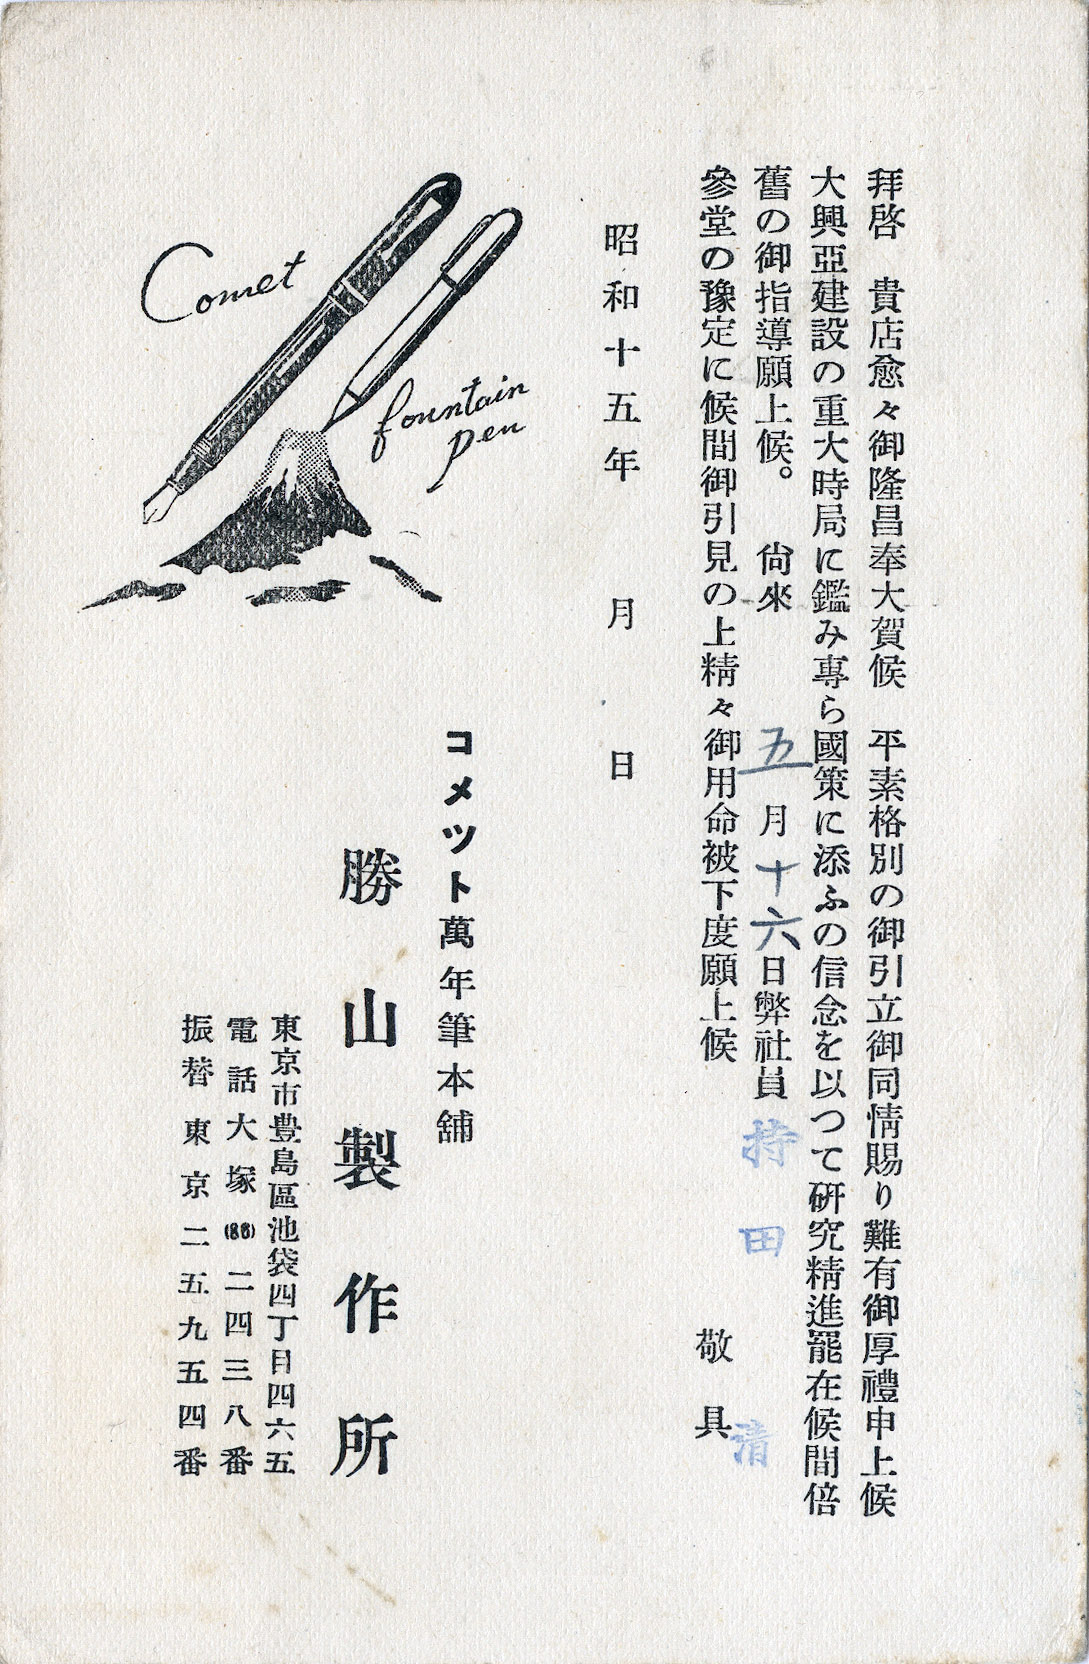 拜啓　貴店愈々御隆昌奉大賀候　平素格別の御引立御同情賜り難有御厚禮申上候
大興亞建設の重大時局に鑑み專ら國策に添ふの信念を以つて研究精進罷在候間倍
舊の御指導願上候。　尙來　五月十六日弊社員　持田　清
參堂の豫定に候間御引見の上精々御用命被下度願上候　敬具
昭和十五年　月　日
Comet
fountain
pen
コメツト萬年筆本舖
勝山製作所
東京市豊島區池袋四丁目四六五
電話大塚(86)二四三八番
振替東京二五九五四番